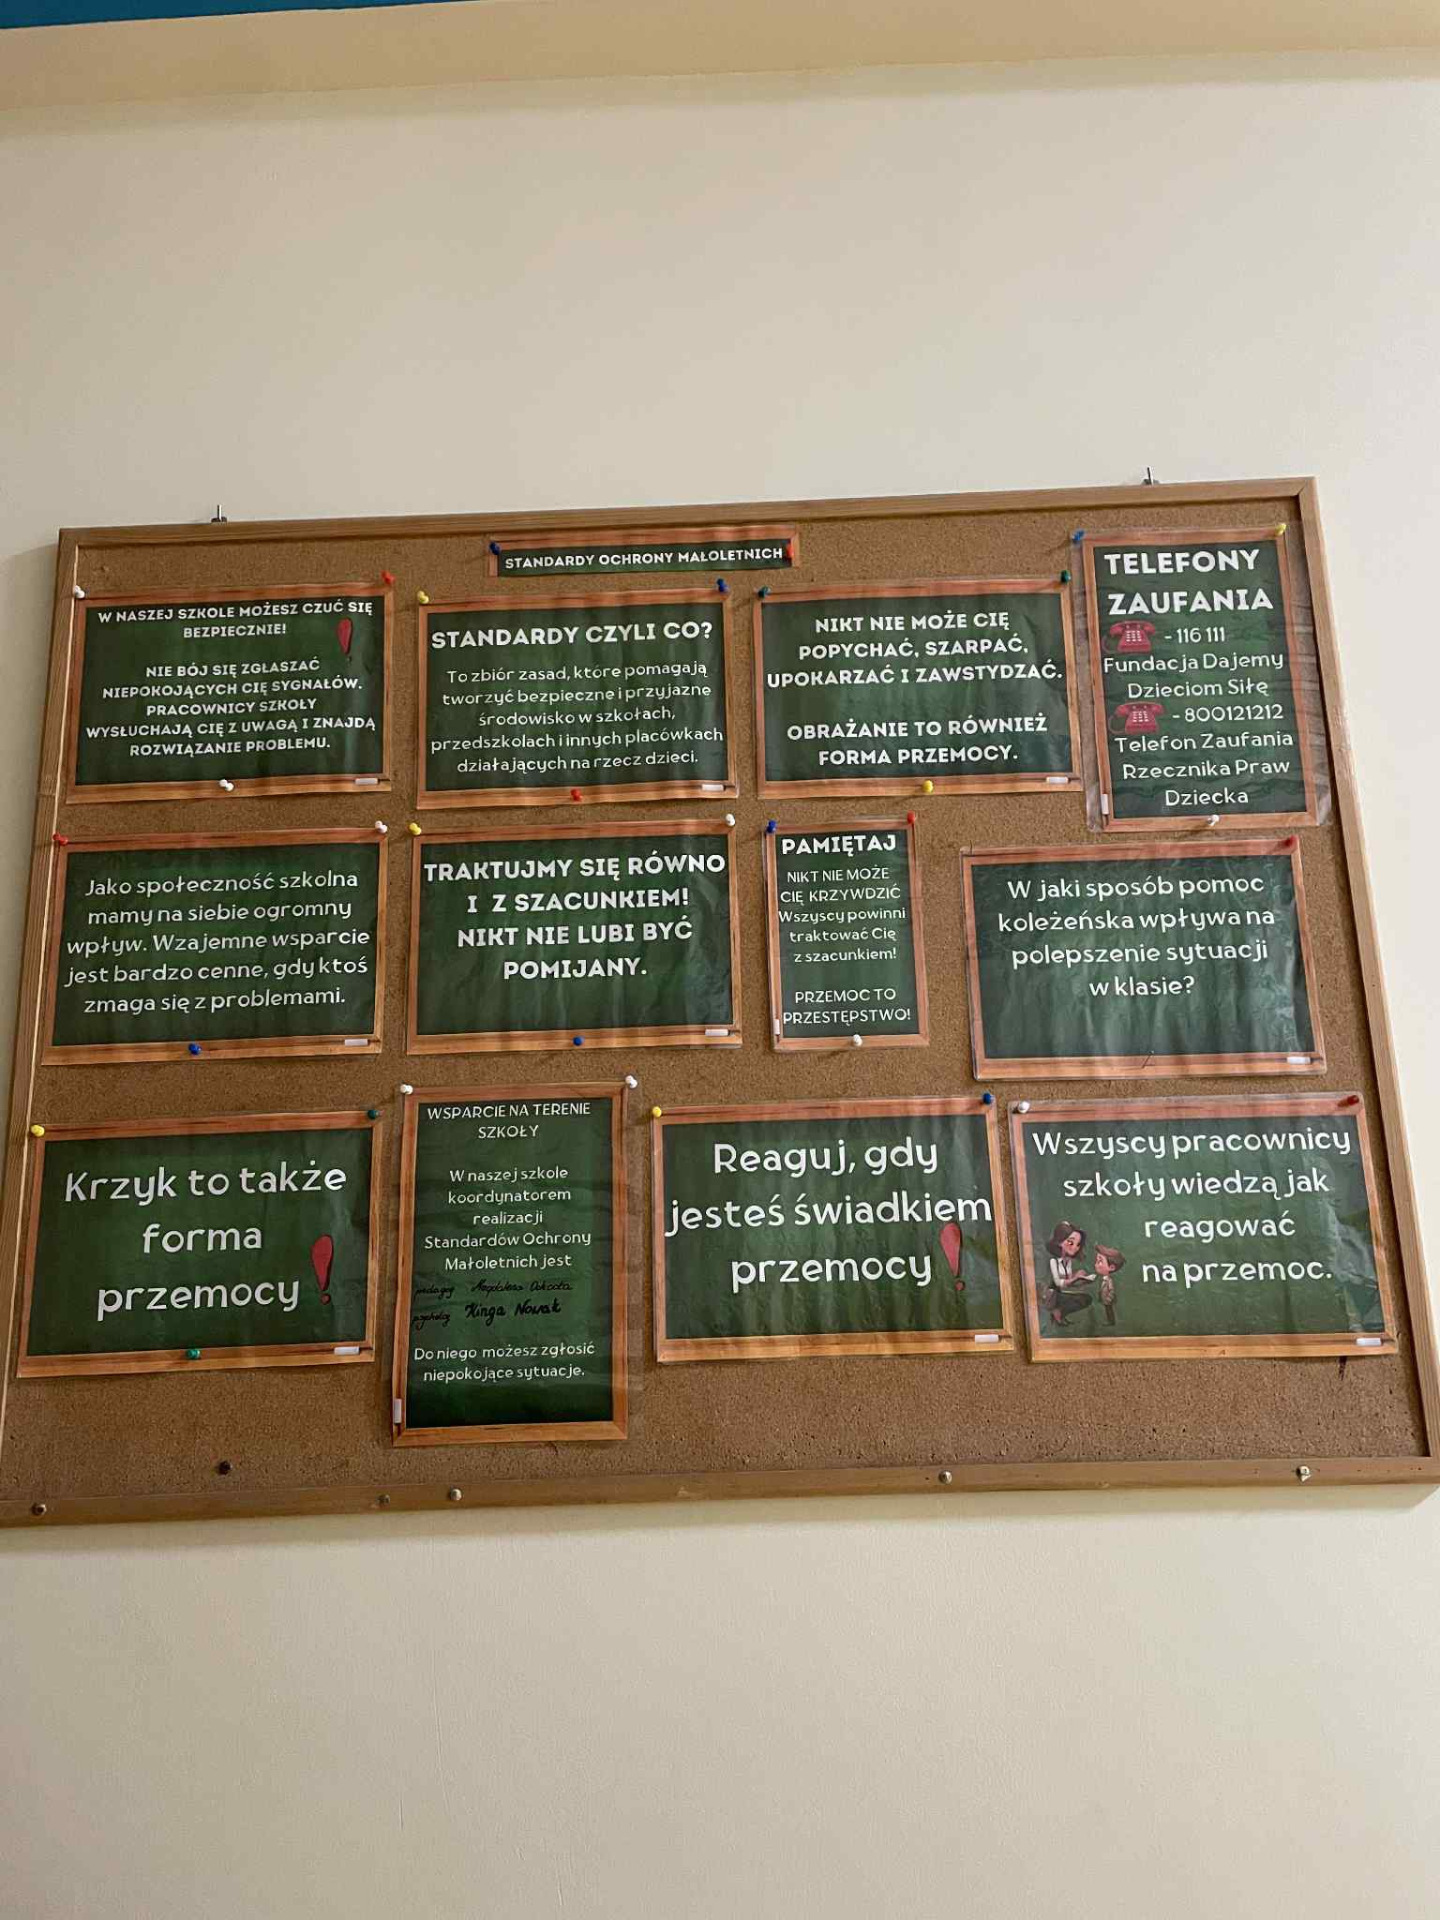 STANDARDY OCHRONY MAŁOLETNICH
W NASZEJ SZKOLE MOŻESZ CZUĆ SIĘ
BEZPIECZNIE!
NIE BÓJ SIĘ ZGŁASZAĆ
NIEPOKOJĄCYCH CIĘ SYGNAŁÓW.
PRACOWNICY SZKOŁY
WYSŁUCHAJĄ CIĘ Z UWAGĄ I ZNAJDĄ
ROZWIĄZANIE PROBLEMU.
STANDARDY CZYLI CO?
To zbiór zasad, które pomagają
tworzyć bezpieczne i przyjazne
środowisko w szkołach,
przedszkolach i innych placówkach
działających na rzecz dzieci.
NIKT NIE MOŻE CIĘ
POPYCHAĆ, SZARPAĆ,
UPOKARZAĆ I ZAWSTYDZAĆ.
OBRAŻANIE TO RÓWNIEŻ
FORMA PRZEMOCY.
TELEFONY
ZAUFANIA
- 116 111
Fundacja Dajemy
Dzieciom Siłę
- 800121212
Telefon Zaufania
Rzecznika Praw
Dziecka
Jako społeczność szkolna
mamy na siebie ogromny
wpływ. Wzajemne wsparcie
jest bardzo cenne, gdy ktoś
zmaga się z problemami.
TRAKTUJMY SIĘ RÓWNO
I Z SZACUNKIEM!
NIKT NIE LUBI BYĆ
POMIJANY.
PAMIĘTAJ
NIKT NIE MOŻE
CIĘ KRZYWDZIĆ
Wszyscy powinni
traktować Cię
z szacunkiem!
PRZEMOC TO
PRZESTĘPSTWO!
W jaki sposób pomoc
koleżeńska wpływa na
polepszenie sytuacji
w klasie?
Krzyk to także
forma
przemocy
WSPARCIE NA TERENIE
SZKOŁY
W naszej szkole
koordynatorem
realizacji
Standardów Ochrony
Małoletnich jest
pedagog Magdalena
psycholog Kinga Nowak
Do niego możesz zgłosić
niepokojące sytuacje.
Reaguj, gdy
jesteś świadkiem
przemocy
Wszyscy pracownicy
szkoły wiedzą jak
reagować
na przemoc.